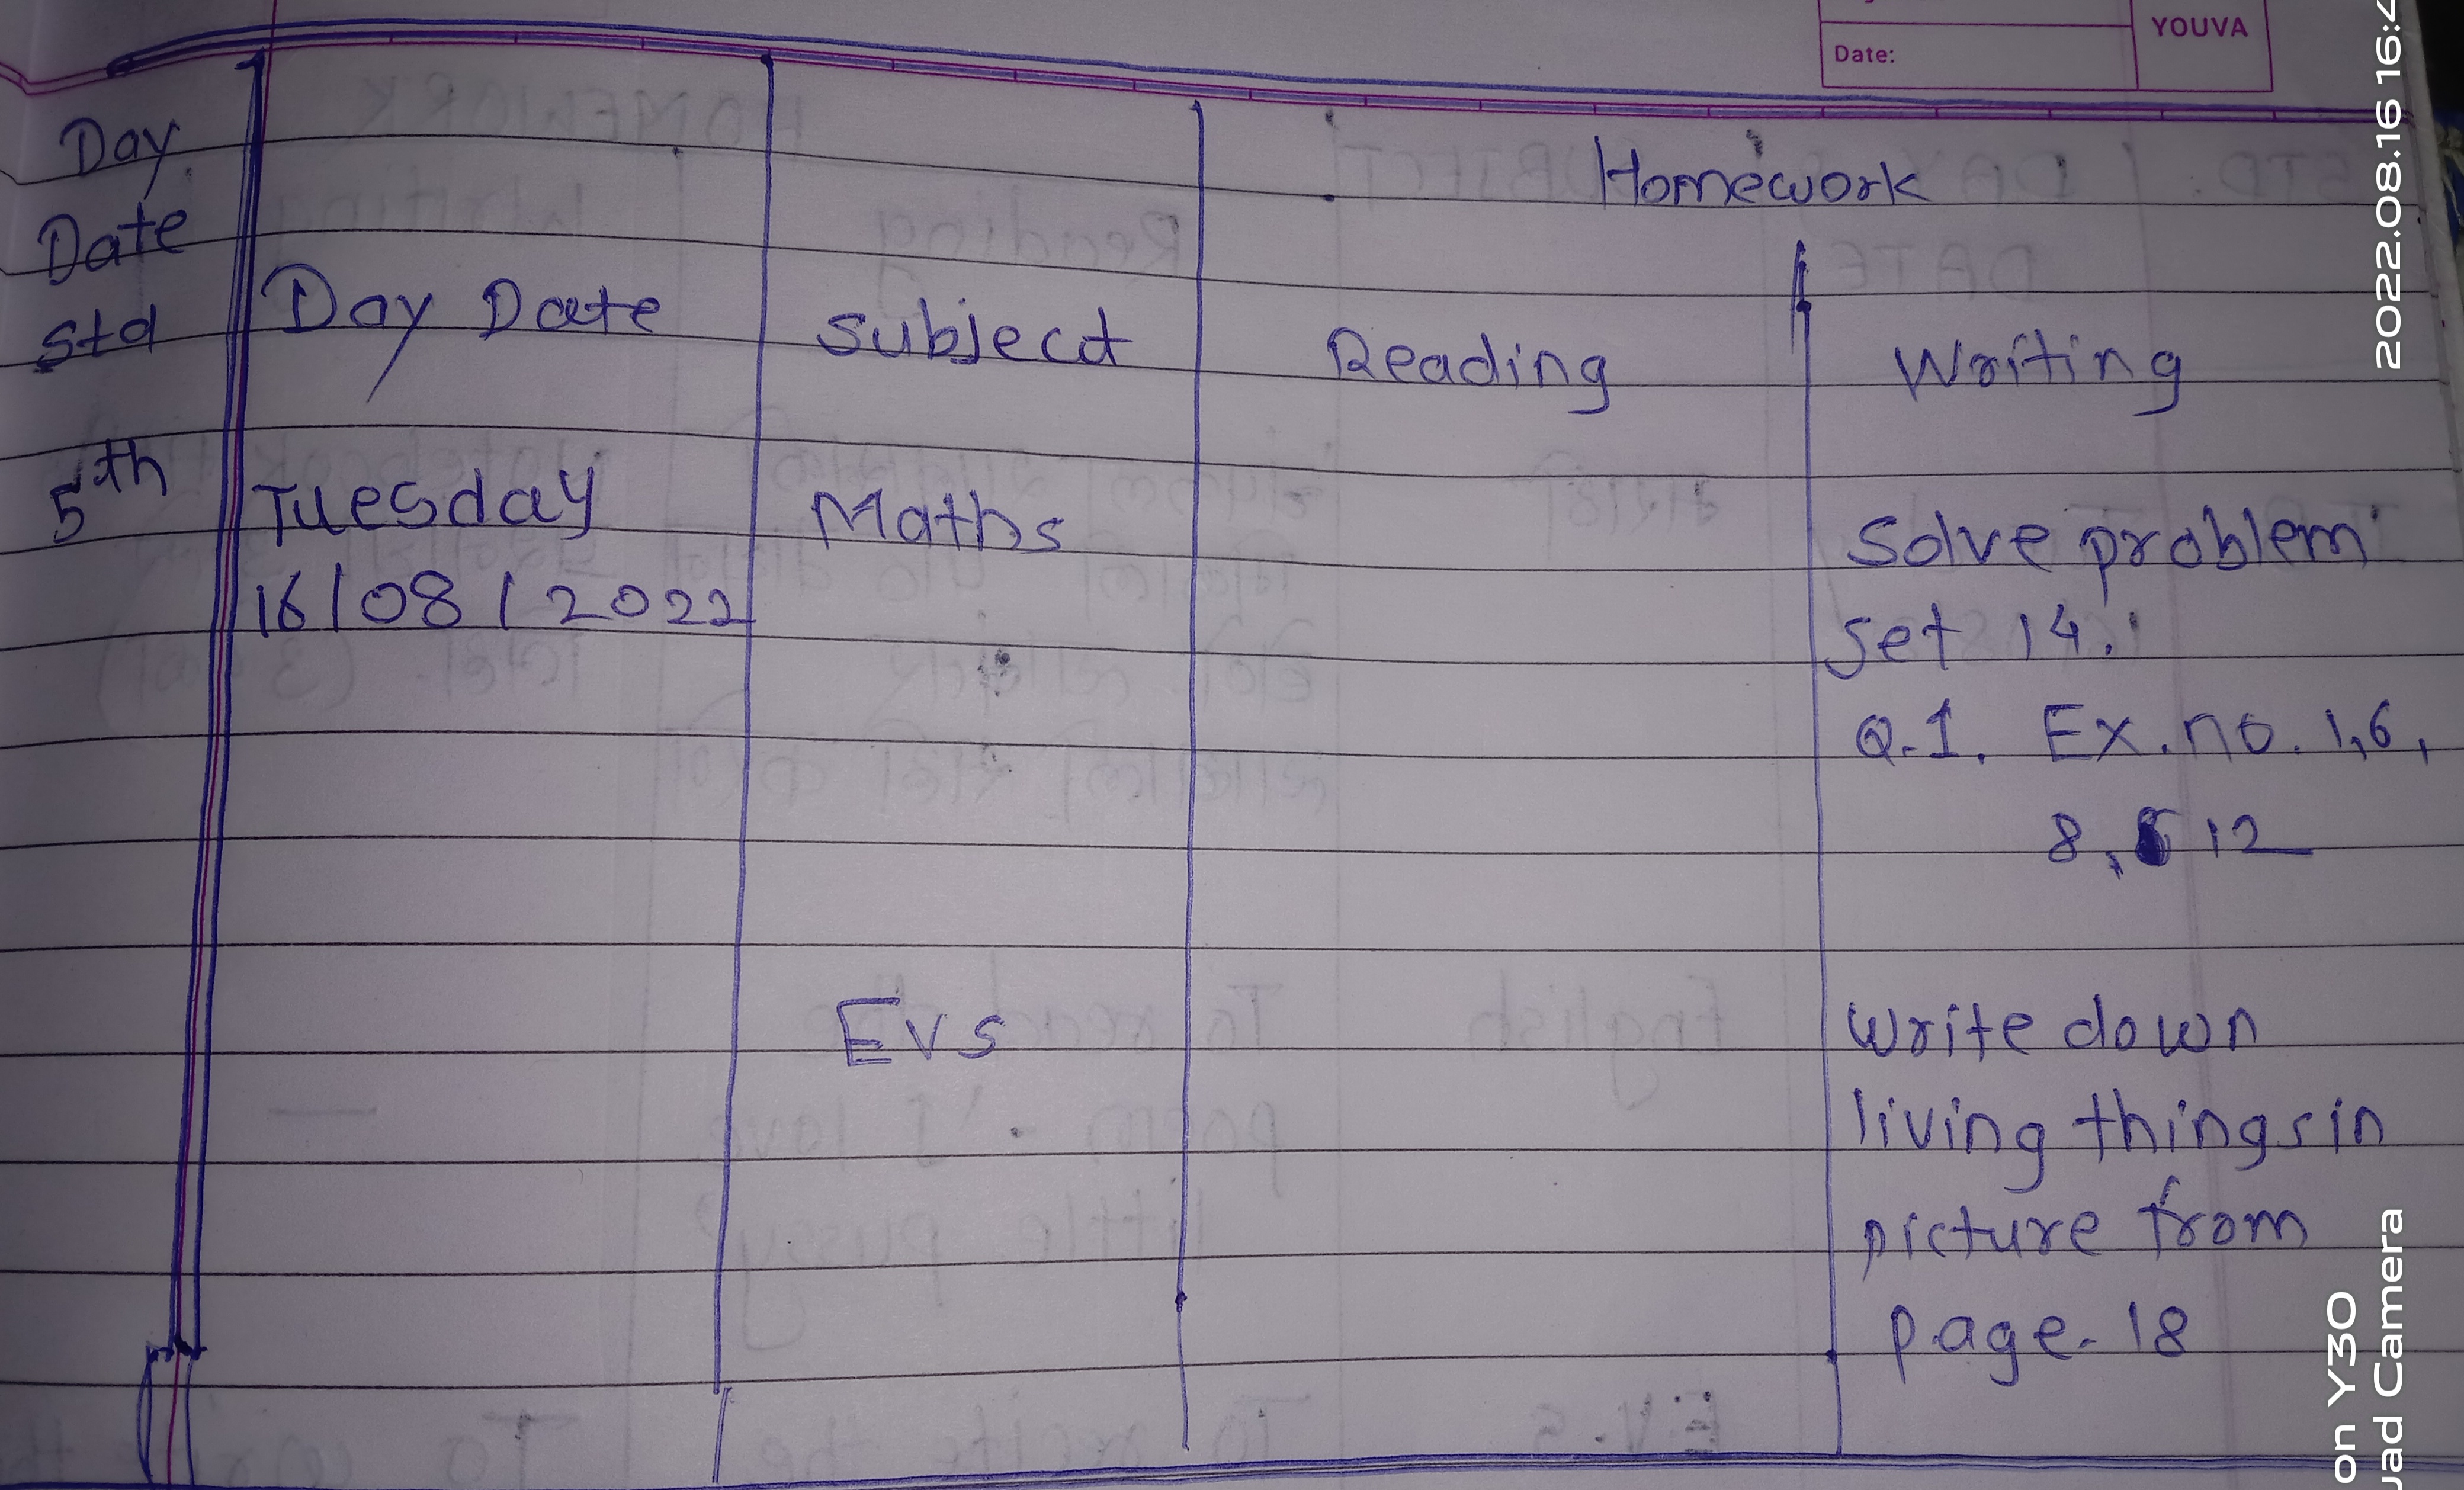 YOUVA
Date:
Day
Date
Std
Day Date
Subject
Homework
Reading
Writing
5th
Tuesday
16/08/2022
Maths
Solve problem
set 14.
Q.1. Ex. no. 1,6,
8, 12
EVS
Write down
living things in
picture from
page-18
2022.08.16 16:4
on Y30
uad Camera